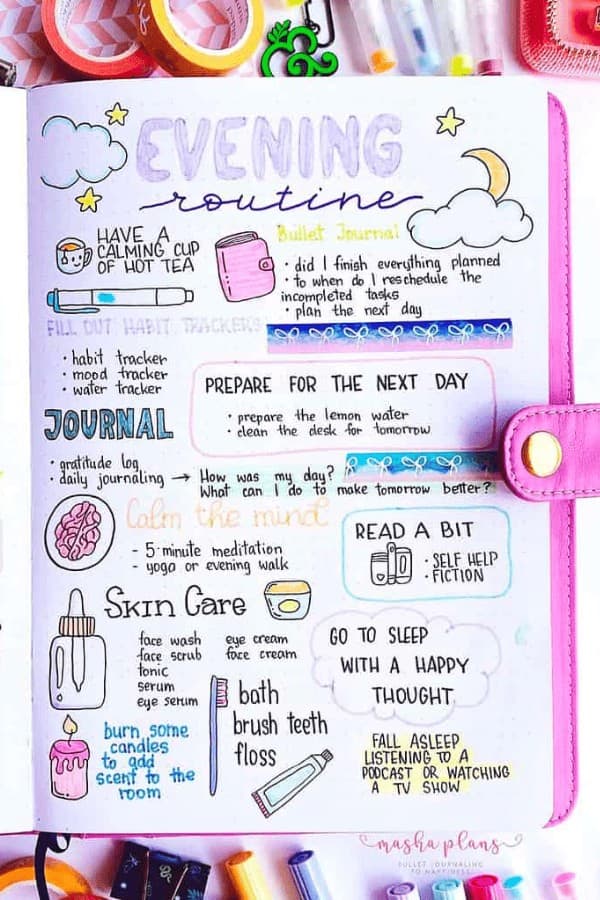 EVENING
routine
HAVE A
CALMING CUP
OF HOT TEA
Bullet Journal
• did I finish everything planned
• to when do I reschedule the
incompleted tasks
• plan the next day
FILL OUT HABIT TRACKERS
• habit tracker
• mood tracker
• water tracker
PREPARE FOR THE NEXT DAY
• prepare the lemon water
• clean the desk for tomorrow
JOURNAL
• gratitude log
• daily journaling → How was my day?
What can I do to make tomorrow better?
Calm the mind
- 5 minute meditation
- yoga or evening walk
READ A BIT
• SELF HELP
• FICTION
Skin Care
face wash
face scrub
tonic
serum
eye serum
eye cream
face cream
GO TO SLEEP
WITH A HAPPY
THOUGHT
bath
brush teeth
floss
burn some
candles
to add
scent to the
room
FALL ASLEEP
LISTENING TO A
PODCAST OR WATCHING
A TV SHOW
masha plans
BULLET JOURNALING
TO HAPPINESS